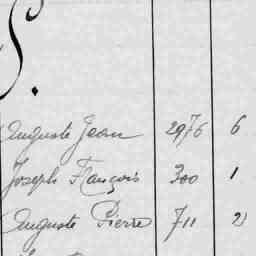 S.
Auguste Jean 2976 6
Joseph François 300 1
Auguste Pierre 711 2